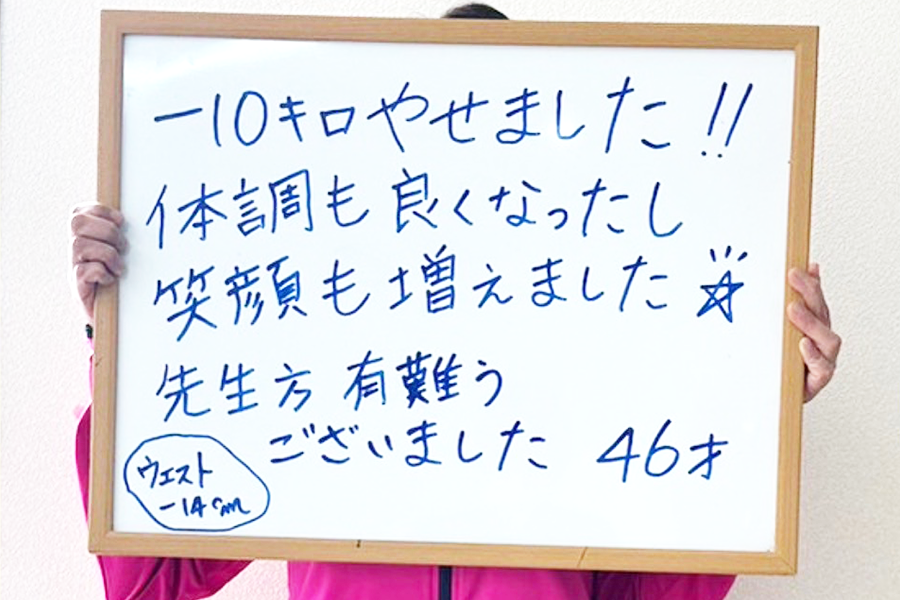 -10キロやせました!!
体調も良くなったし
笑顔も増えました☆
先生方 有難う
ございました 46才
ウエスト
-14cm